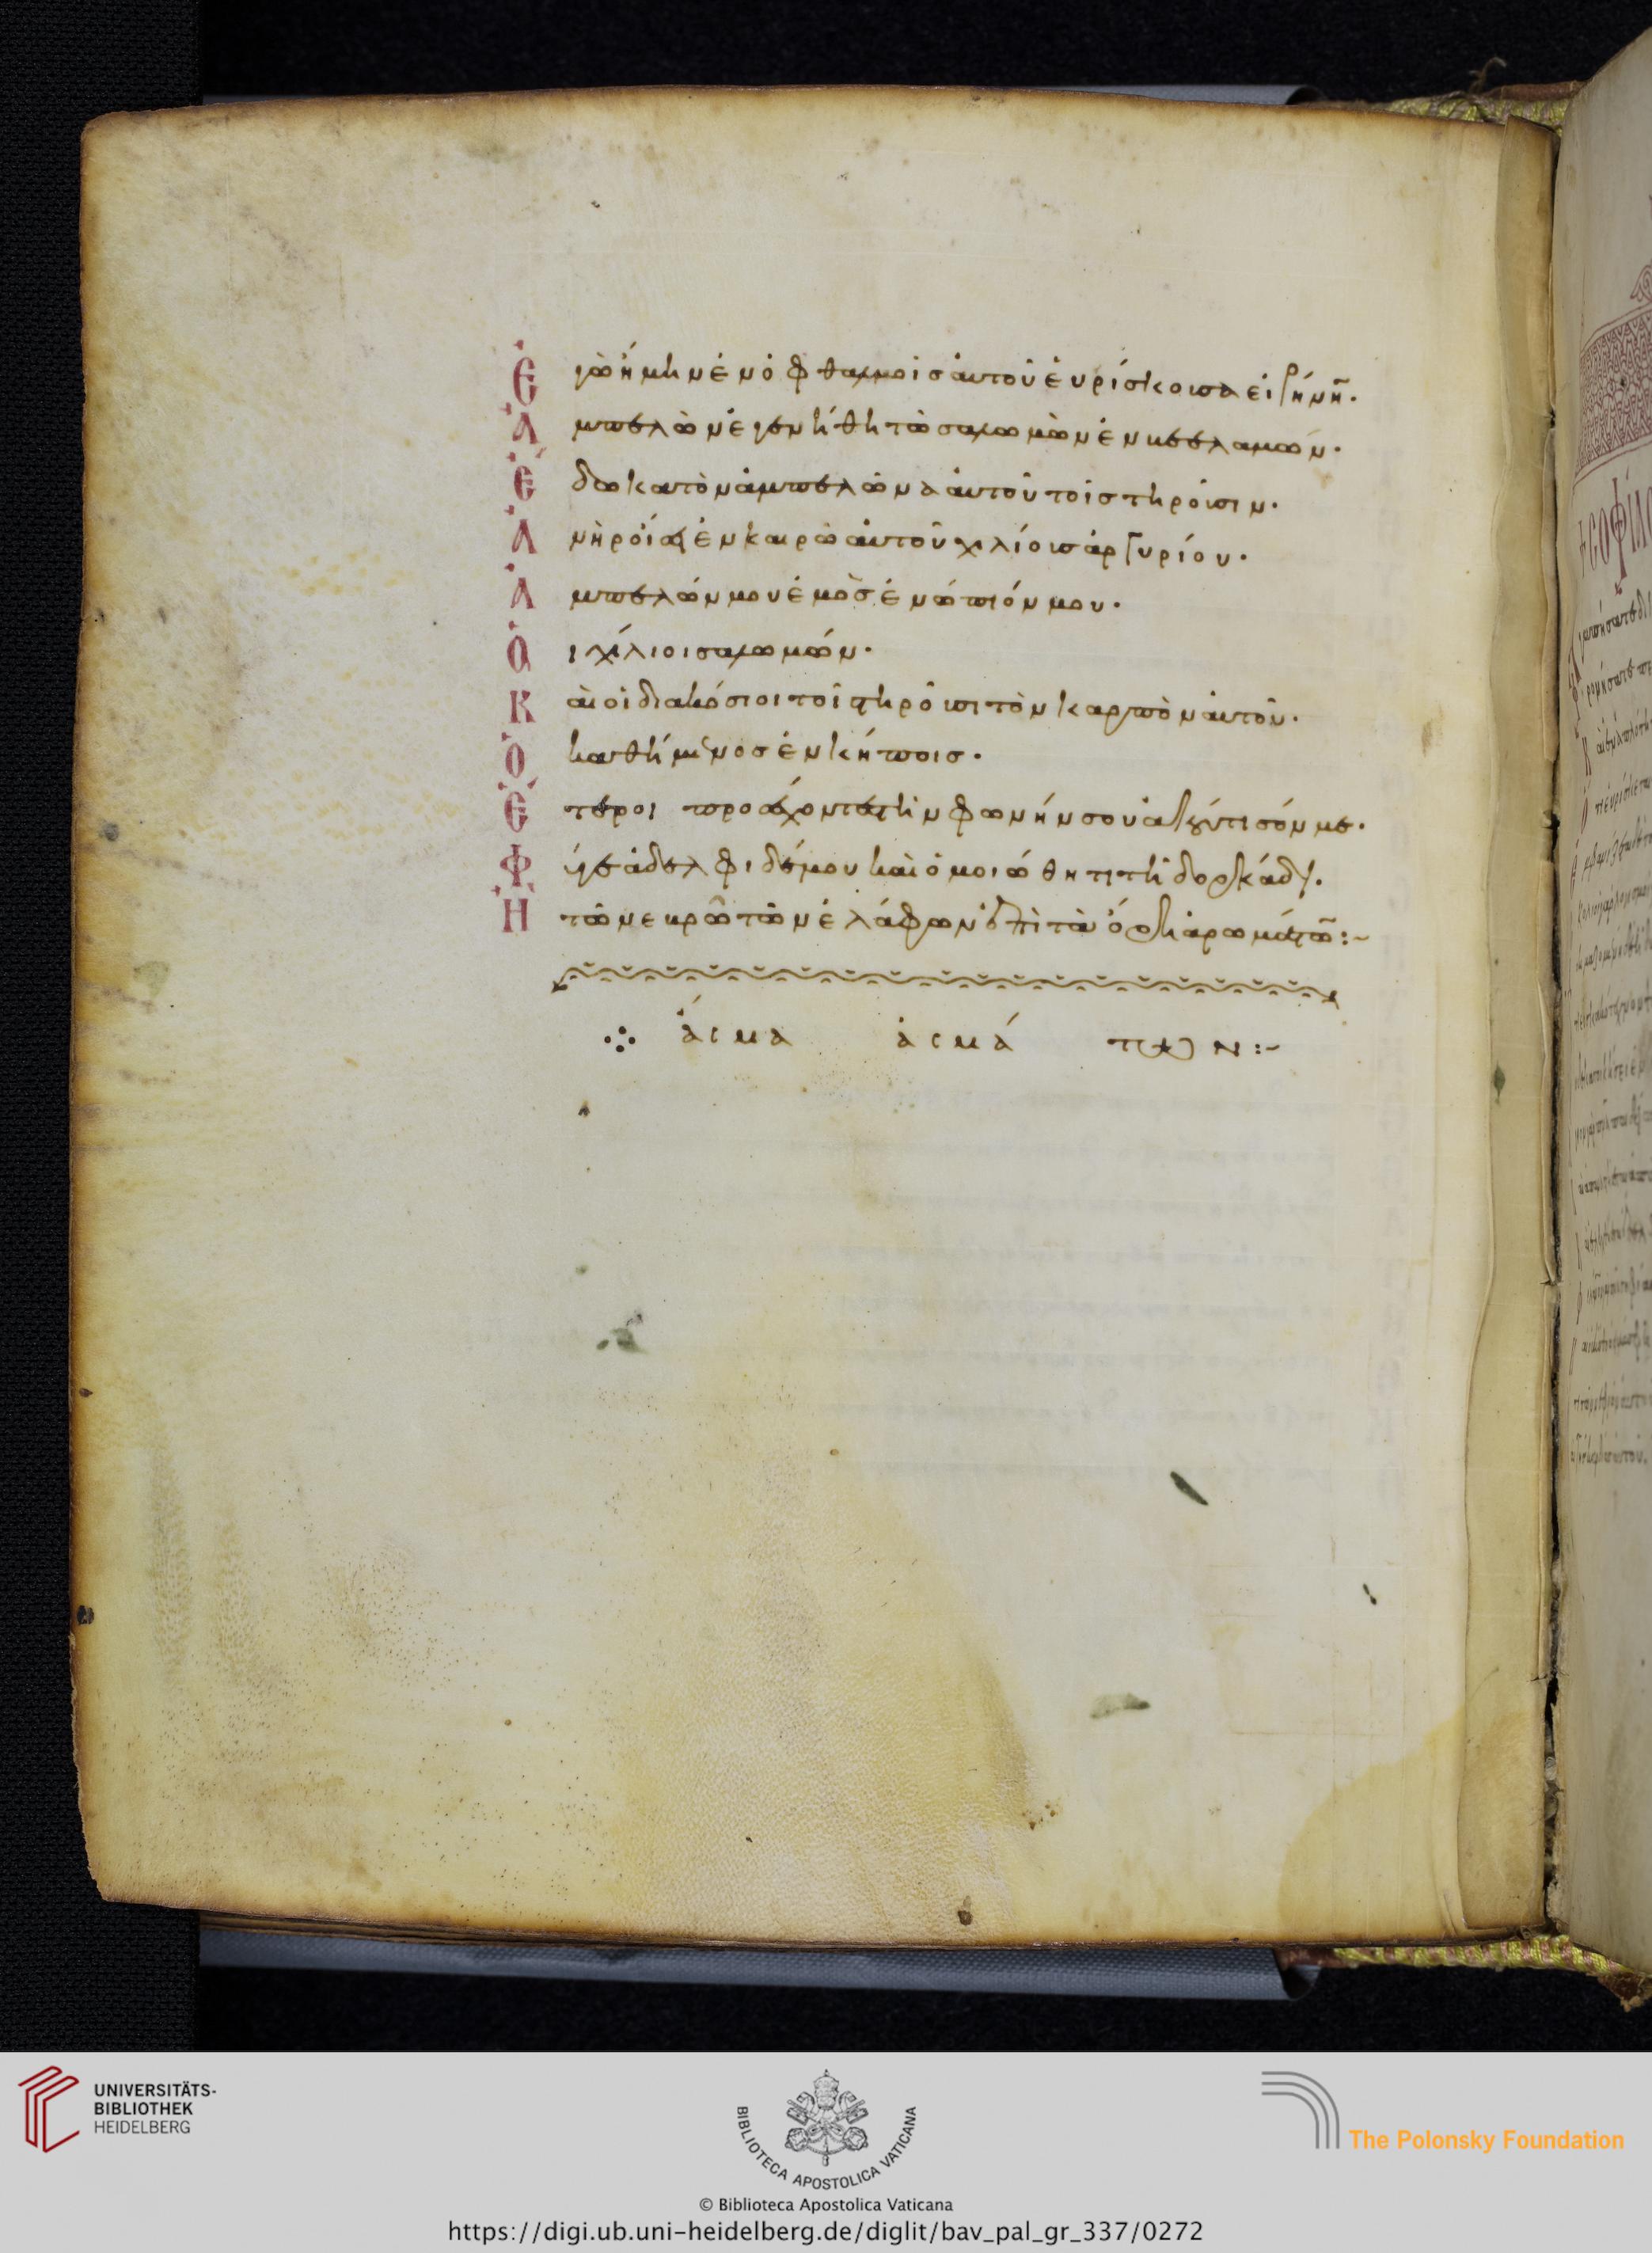 Ἐγὼ ἤμην ἐν ὀφθαλμοῖς αὐτοῦ εὑρίσκουσα εἰρήνην.
Ἀμπελὼν ἐγενήθη τῶ σαλωμὼν ἐν κεελαμών.
Ἔδωκα τὸν ἀμπελῶνα αὐτοῦ τοῖς τηροῦσιν.
Ἀνὴρ οἴσει ἐν καρπῶ αὐτοῦ χιλίους ἀργυρίου.
Ἀμπελών μου ἐμὸς ἐνώπιόν μου.
Ὁι χίλιοι σαλωμών.
Κ αὶ οἱ διακόσιοι τοῖς τηροῦσι τὸν καρπὸν αὐτοῦ.
Ὁ καθήμενος ἐν κήποις.
Ἑτέροι προσέχοντες τὴν φωνήν σου ἀκούτισόν με.
Φ ύγε ἀδελφιδέ μου καὶ ὁμοιώθητι τῆ δορκάδι.
Ἢ τῶ νεβρῶ τῶν ἐλάφων ἐπὶ τὰ ὄρη ἀρωμάτων:~
ἄσμα ἀσμάτων:~
UNIVERSITÄTS-
BIBLIOTHEK
HEIDELBERG
BIBLIOTECA APOSTOLICA VATICANA
The Polonsky Foundation
© Biblioteca Apostolica Vaticana
https://digi.ub.uni-heidelberg.de/diglit/bav_pal_gr_337/0272